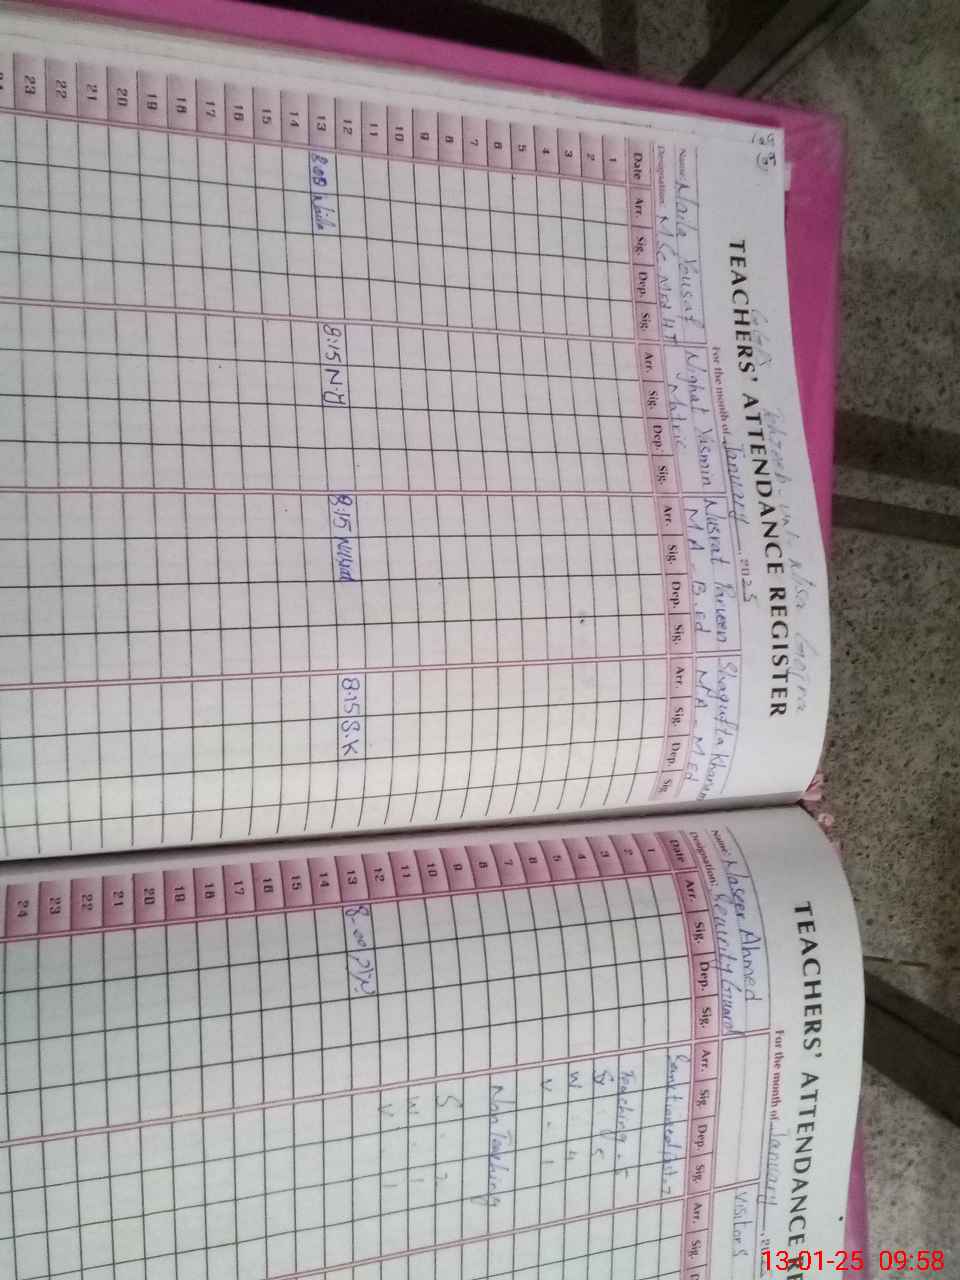 TEACHERS' ATTENDANCE REGISTER
For the month of January, 2025
Name: Naila Yousaf Nighat Yasmin Nusrat Parveen Shagufta Khanum
Designation: M.Sc M.ed Matric M.A - B.ed M.A - M.Ed
Date Arr. Sig. Dep. Sig. Arr. Sig. Dep. Sig. Arr. Sig. Dep. Sig. Arr. Sig. Dep. Sig.
1
2
3
4
5
6
7
8
9
10
11
12
13 8:00 Naila 8:15 N.Y 8:15 Nusrat 8:15 S.K
14
15
16
17
18
19
20
21
22
23
TEACHERS' ATTENDANCE
For the month of January
Name: Naseer Ahmed Visitors
Designation: Security Guard
Date Arr. Sig. Dep. Sig. Arr. Sig. Dep. Sig. Arr. Sig.
1
2 Teaching - 5
3 S 5
4 W - 4
5 V - 1
6
7 Non Teaching
8
9 S - 2
10 W - 1
11 V - 1
12
13 8-00
14
15
16
17
18
19
20
21
22
23
24
13-01-25 09:58